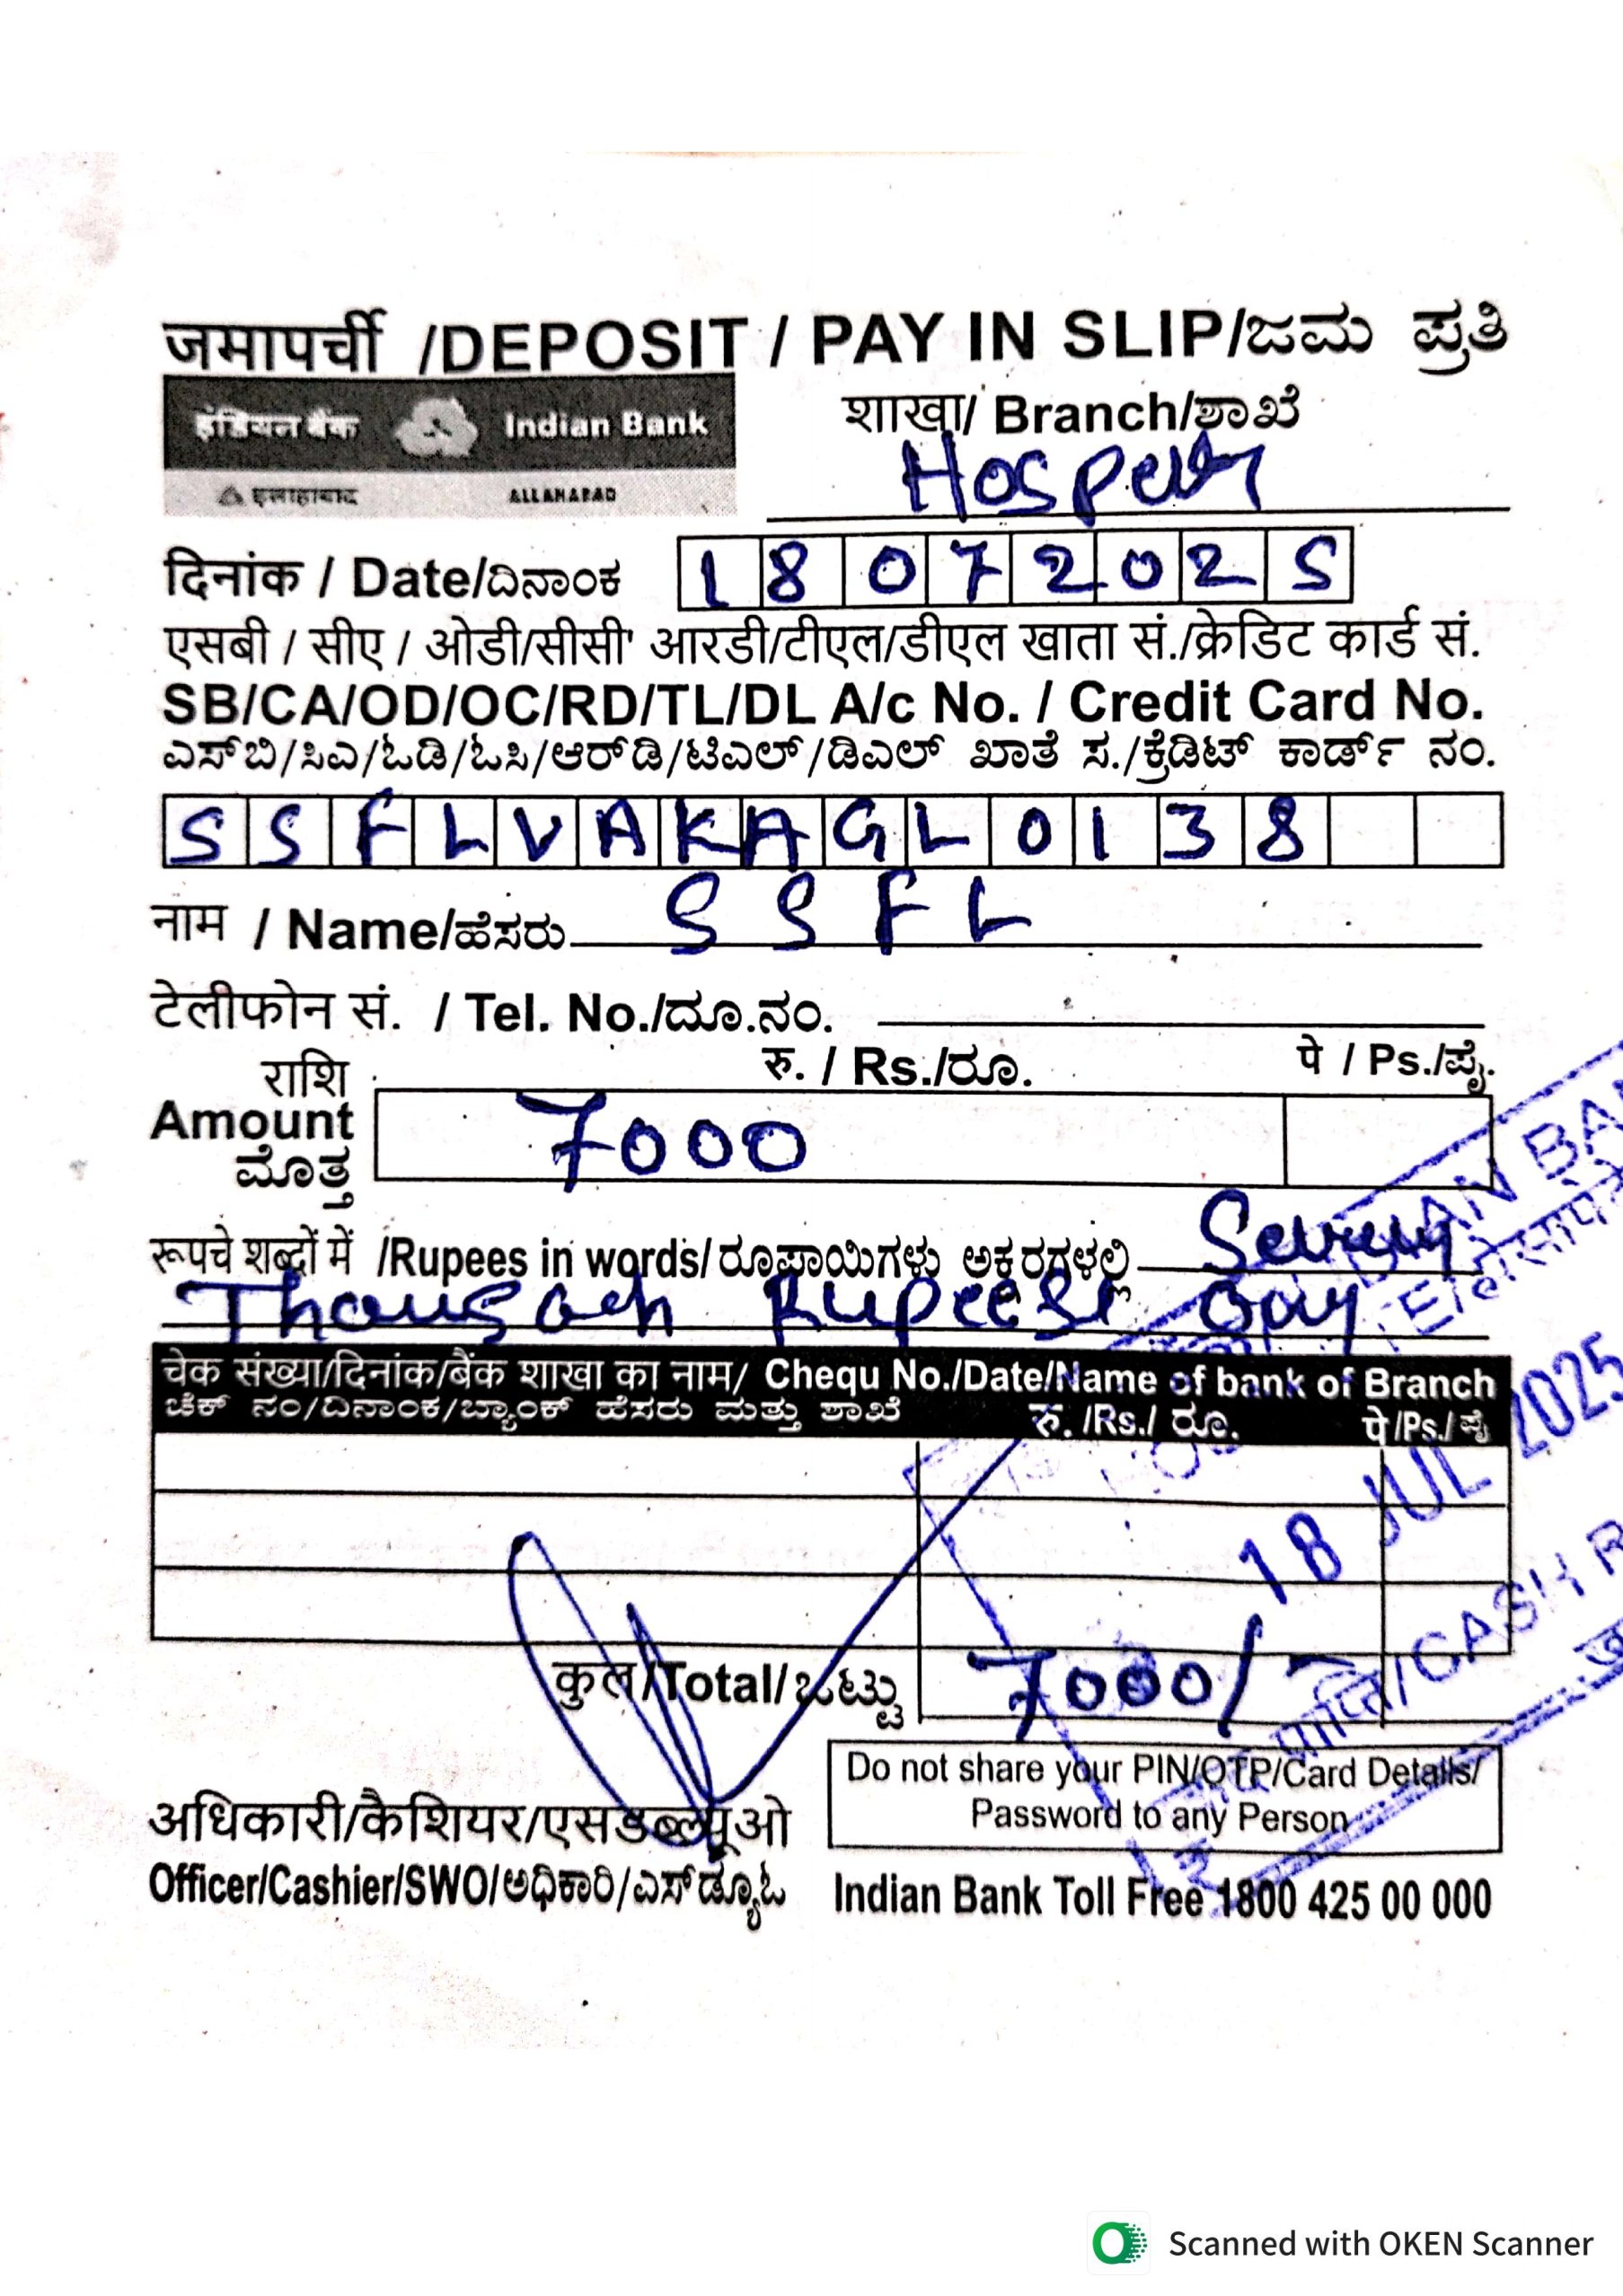 जमापर्ची /DEPOSIT / PAY IN SLIP/ಜಮ ಪ್ರತಿ
इंडियन बैंक Indian Bank
इलाहाबाद ALLAHABAD
शाखा/ Branch/ಶಾಖೆ
Hospet
दिनांक / Date/ದಿನಾಂಕ 18072025
एसबी / सीए / ओडी/सीसी' आरडी/टीएल/डीएल खाता सं./क्रेडिट कार्ड सं.
SB/CA/OD/OC/RD/TL/DL A/c No. / Credit Card No.
ಎಸ್‌ಬಿ/ಸಿಎ/ಓಡಿ/ಓಸಿ/ಆರ್‌ಡಿ/ಟಿಎಲ್/ಡಿಎಲ್ ಖಾತೆ ಸ./ಕ್ರೆಡಿಟ್ ಕಾರ್ಡ್ ನಂ.
SSFLVAKAGL0138
नाम / Name/ಹೆಸರು SSFL
टेलीफोन सं. / Tel. No./ದೂ.ನಂ.
राशि रु. / Rs./ರೂ. पे / Ps./ಪೈ.
Amount 7000
ಮೊತ್ತ
रूपचे शब्दों में /Rupees in words/ರೂಪಾಯಿಗಳು ಅಕ್ಷರಗಳಲ್ಲಿ
Rupees
चेक संख्या/दिनांक/बैंक शाखा का नाम/ Chequ No./Date/Name of bank of Branch
ಚೆಕ್ ನಂ/ದಿನಾಂಕ/ಬ್ಯಾಂಕ್ ಹೆಸರು ಮತ್ತು ಶಾಖೆ रु. /Rs./ ರೂ. पे /Ps./ ಪೈ
18 JUL 2025
कुल/Total/ಒಟ್ಟು 7000/-
प्राप्ति/CASH
Do not share your PIN/OTP/Card Details/
Password to any Person
अधिकारी/कैशियर/एसडब्ल्यूओ
Officer/Cashier/SWO/ಅಧಿಕಾರಿ/ಎಸ್‌ಡ್ಯೂಓ
Indian Bank Toll Free 1800 425 00 000
Scanned with OKEN Scanner